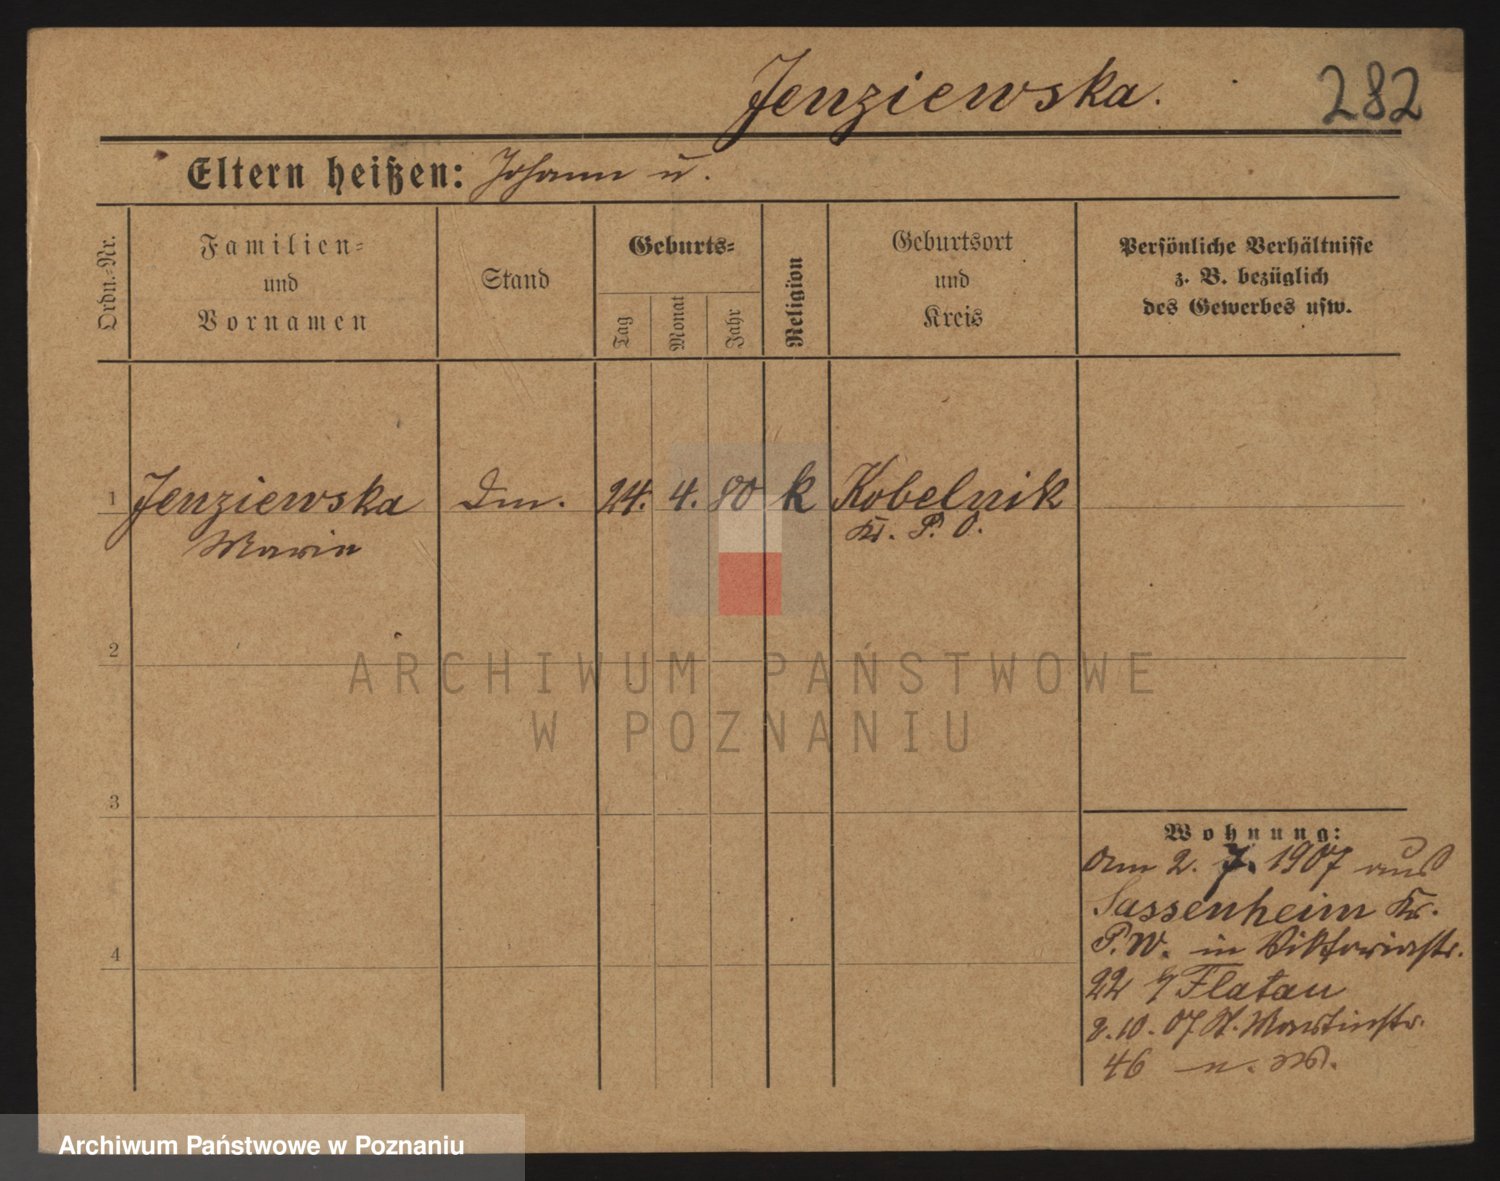 Jenziewska.
282
Eltern heißen: Johann u.
Ordn.-Nr.
Familien-
und
Vornamen
Stand
Geburts-
Tag
Monat
Jahr
Religion
Geburtsort
und
Kreis
Persönliche Verhältnisse
z. B. bezüglich
des Gewerbes usw.
1 Jenziewska 24. 4. 80 k Kobelnik
Maria Kr. P. O.
2
ARCHIWUM PAŃSTWOWE
W POZNANIU
3
Wohnung:
am 2. 7. 1907 aus
Sassenheim Kr.
P.W. in Viktoriastr.
4
22 Flatau
2.10.07 St. Martinstr.
46
Archiwum Państwowe w Poznaniu